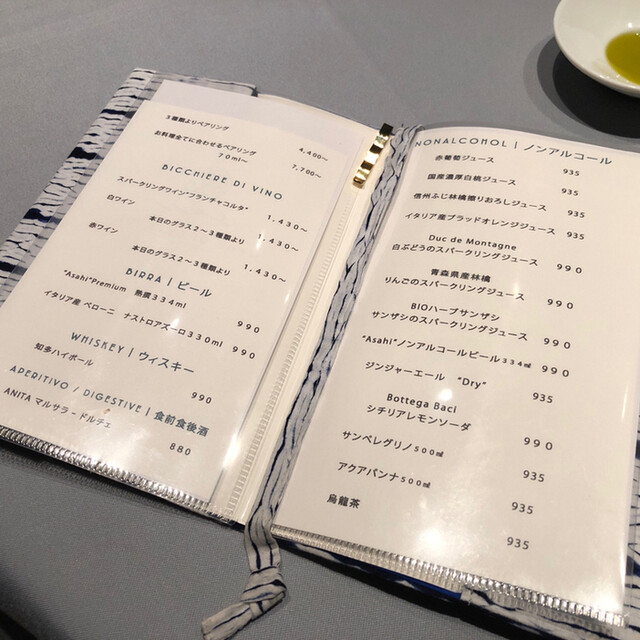 3種類よりペアリング
4,400～
お料理全てに合わせるペアリング
70ml～ 7,700～
BICCHIERE DI VINO
スパークリングワイン"フランチャコルタ"
1.430～
白ワイン
本日のグラス2～3種類より 1.430～
赤ワイン
本日のグラス2～3種類より 1.430～
BIRRA | ビール
"Asahi"Premium 熟撰334ml 990
イタリア産 ペローニ ナストロアズーロ330ml 990
WHISKEY | ウィスキー
知多ハイボール 990
APERITIVO / DIGESTIVE | 食前食後酒
ANITA マルサラ-ドルチェ 880
NONALCOHOL | ノンアルコール
赤葡萄ジュース 935
国産濃厚白桃ジュース 935
信州ふじ林檎擦りおろしジュース 935
イタリア産ブラッドオレンジジュース 935
Duc de Montagne
白ぶどうのスパークリングジュース 990
青森県産林檎
りんごのスパークリングジュース 990
BIOハーブサンザシ
サンザシのスパークリングジュース 990
"Asahi"ノンアルコールビール334㎖ 990
ジンジャーエール "Dry" 935
Bottega Baci
シチリアレモンソーダ 990
サンペレグリノ500㎖ 935
アクアパンナ500㎖ 935
烏龍茶 935